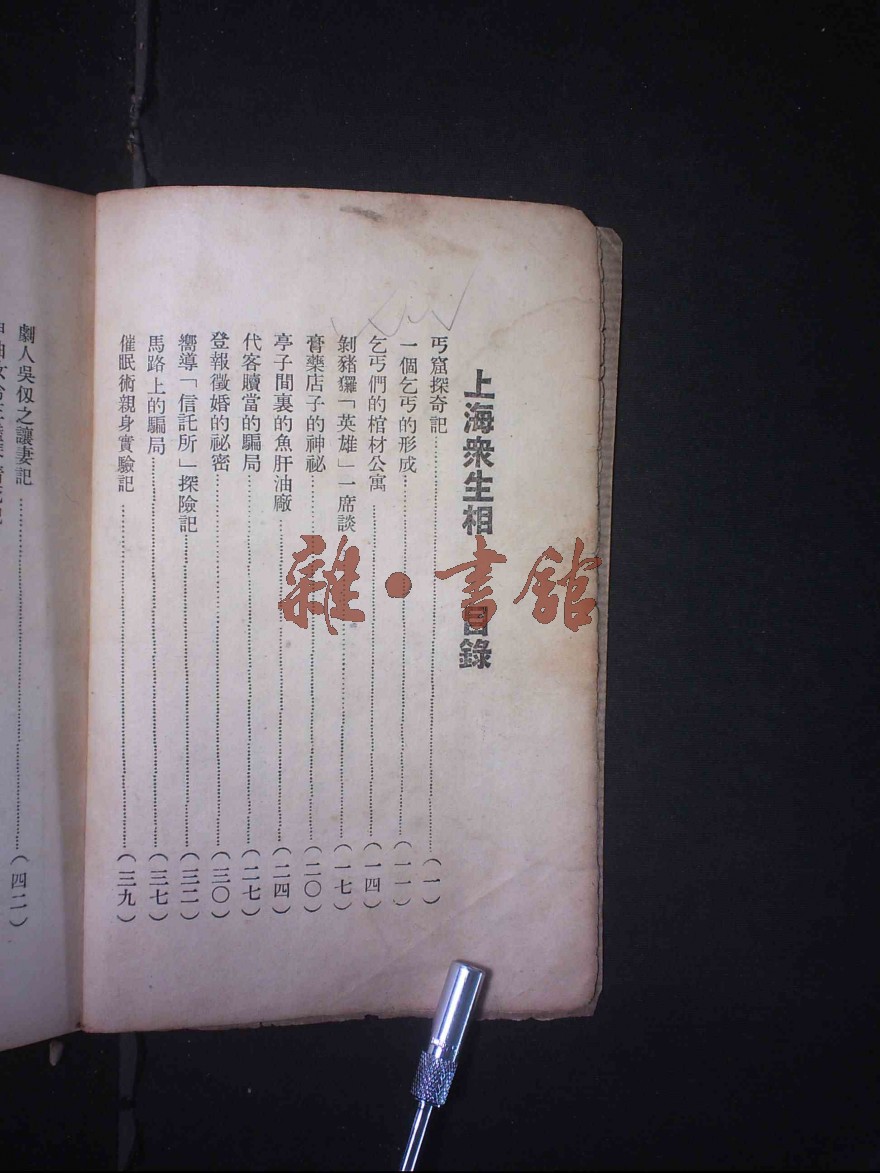 上海衆生相 目錄
丐窟探奇記……(一)
一個乞丐的形成……(一一)
乞丐們的棺材公寓……(一四)
剝豬玀「英雄」一席談……(一七)
膏藥店子的神祕……(二〇)
亭子間裏的魚肝油廠……(二四)
代客贖當的騙局……(二七)
登報徵婚的祕密……(三〇)
嚮導「信託所」探險記……(三二)
馬路上的騙局……(三七)
催眠術親身實驗記……(三九)
劇人吳仞之讓妻記……(四二)
雜·書館